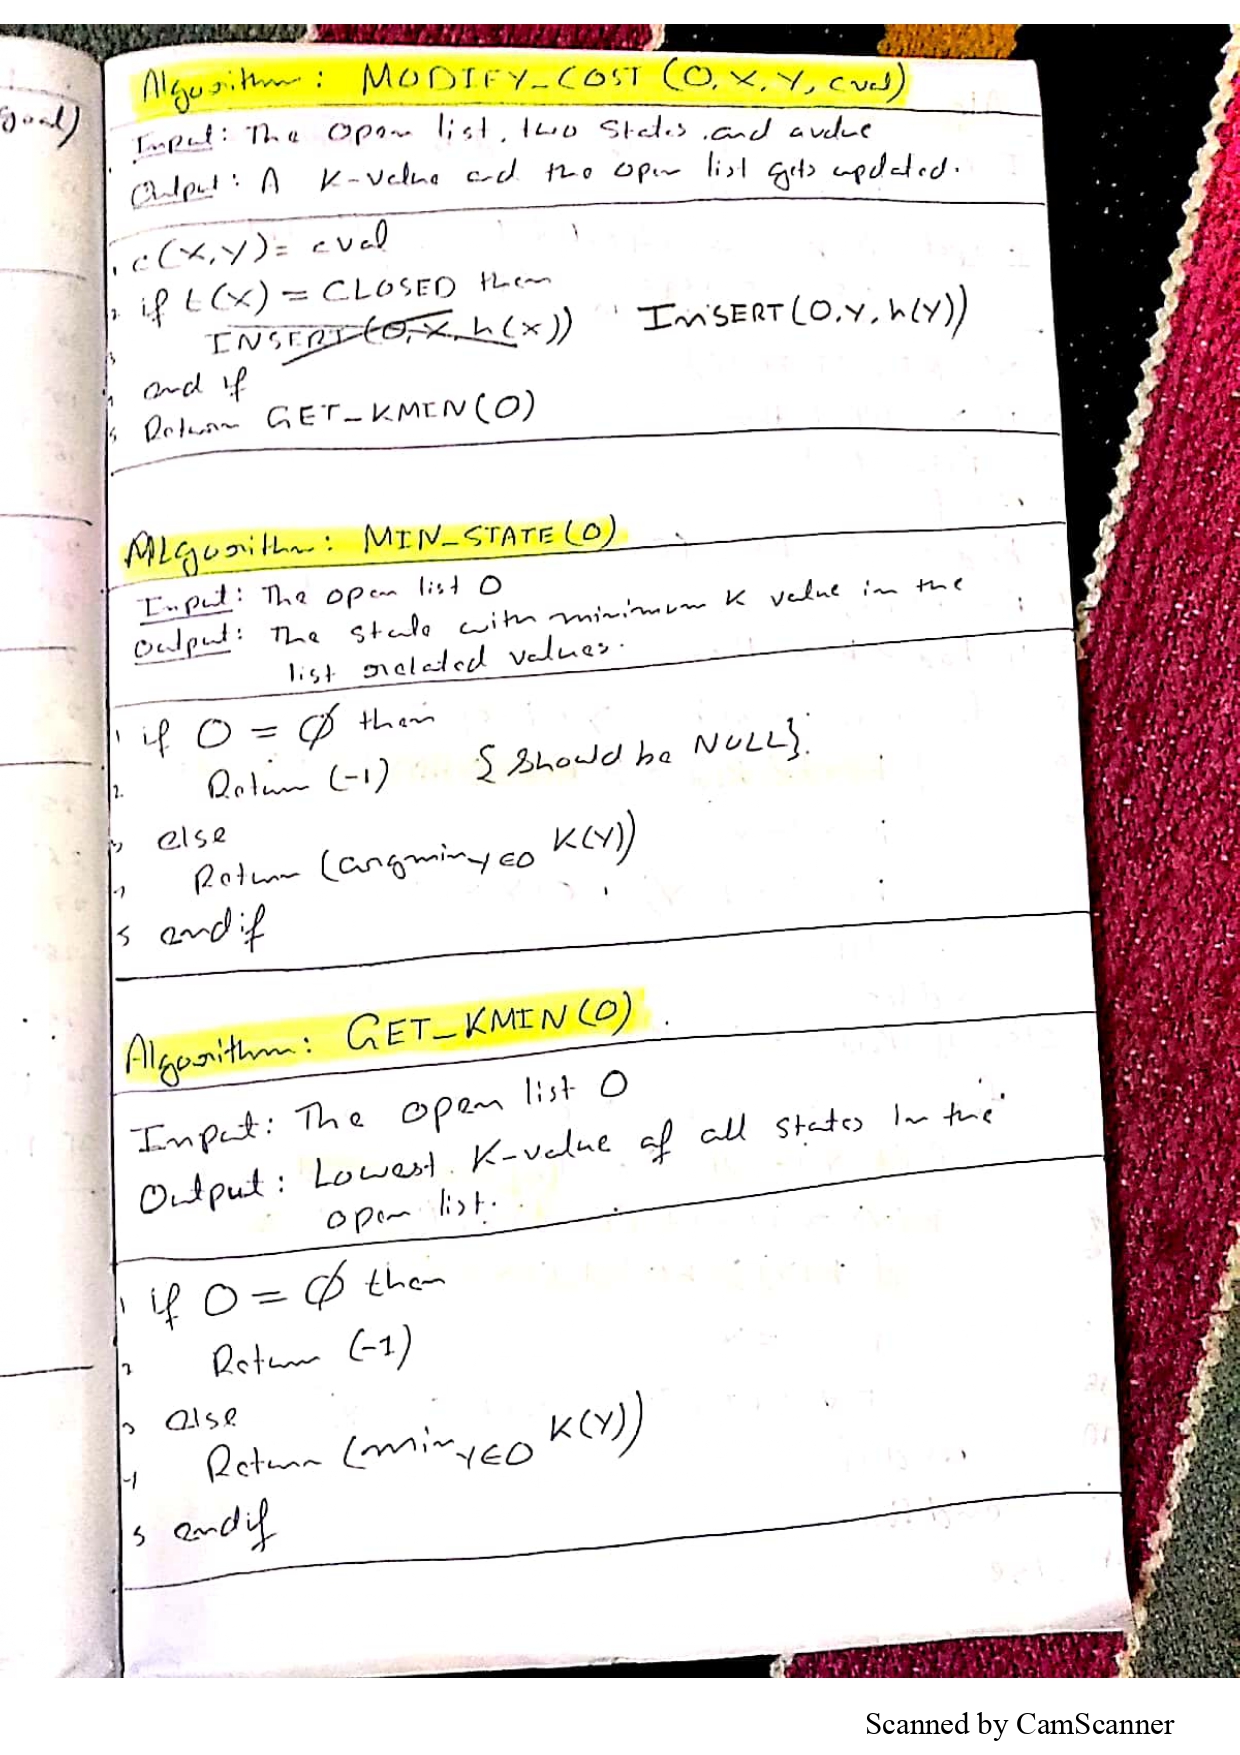 goal)
Algorithm: MODIFY_COST (O, X, Y, cval)
Input: The open list, two states and a value
Output: A K-value and the open list gets updated.
1 c(X,Y) = cval
2 if t(X) = CLOSED then
3 INSERT(O, X, h(X)) INSERT(O, Y, h(Y))
4 end if
5 Return GET_KMIN(O)
ALgorithm: MIN_STATE(O)
Input: The open list O
Output: The state with minimum K value in the
list related values.
1 if O = Ø then
2. Return (-1) {Should be NULL}.
3 else
4 Return (argmin Y∈O K(Y))
5 endif
Algorithm: GET_KMIN(O)
Input: The open list O
Output: Lowest K-value of all states in the
open list.
1 if O = Ø then
2 Return (-1)
3 else
4 Return (min Y∈O K(Y))
5 endif
Scanned by CamScanner